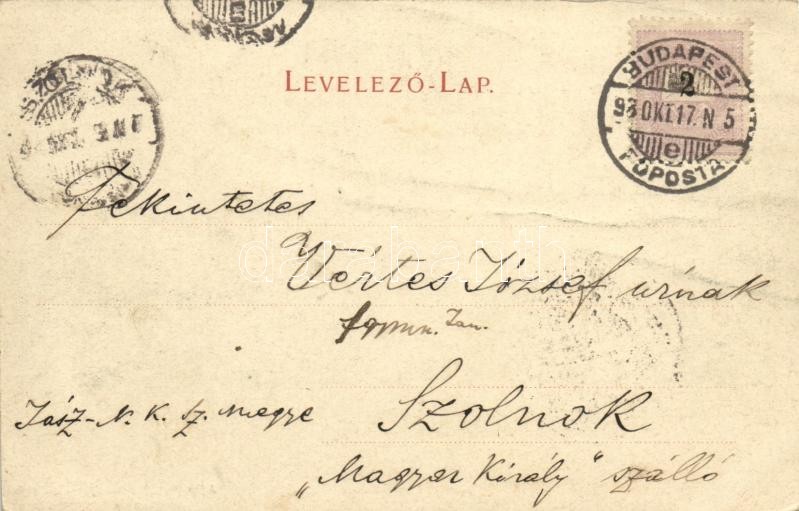 LEVELEZŐ-LAP.
BUDAPEST
2
93 OKT. 17. N 5
e
FŐPOSTA
SZOLNOK
Tekintetes
Vértes József úrnak
Szolnok
Jász-N. K. Sz. megye
„Magyar Király" szálló
darabanth